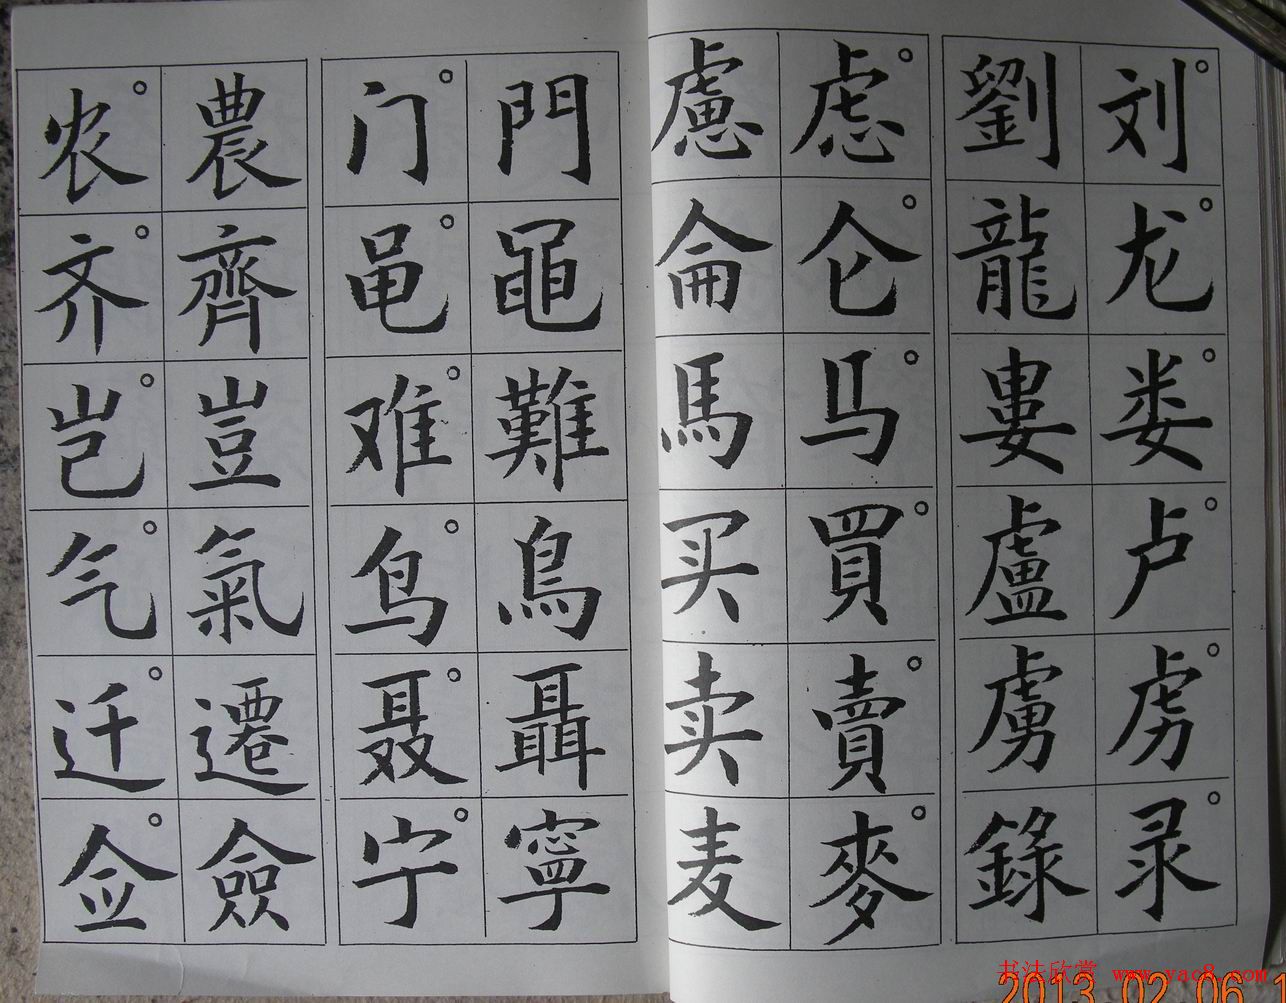 刘龙娄卢虏录
劉龍婁盧虜錄
虑仑马買賣麥
慮侖馬买卖麦
門黽難鳥聶寧
门黾难鸟聂宁
農齊豈氣遷僉
农齐岂气迁佥
书法欣赏 www.yac8.com
2013.02.06